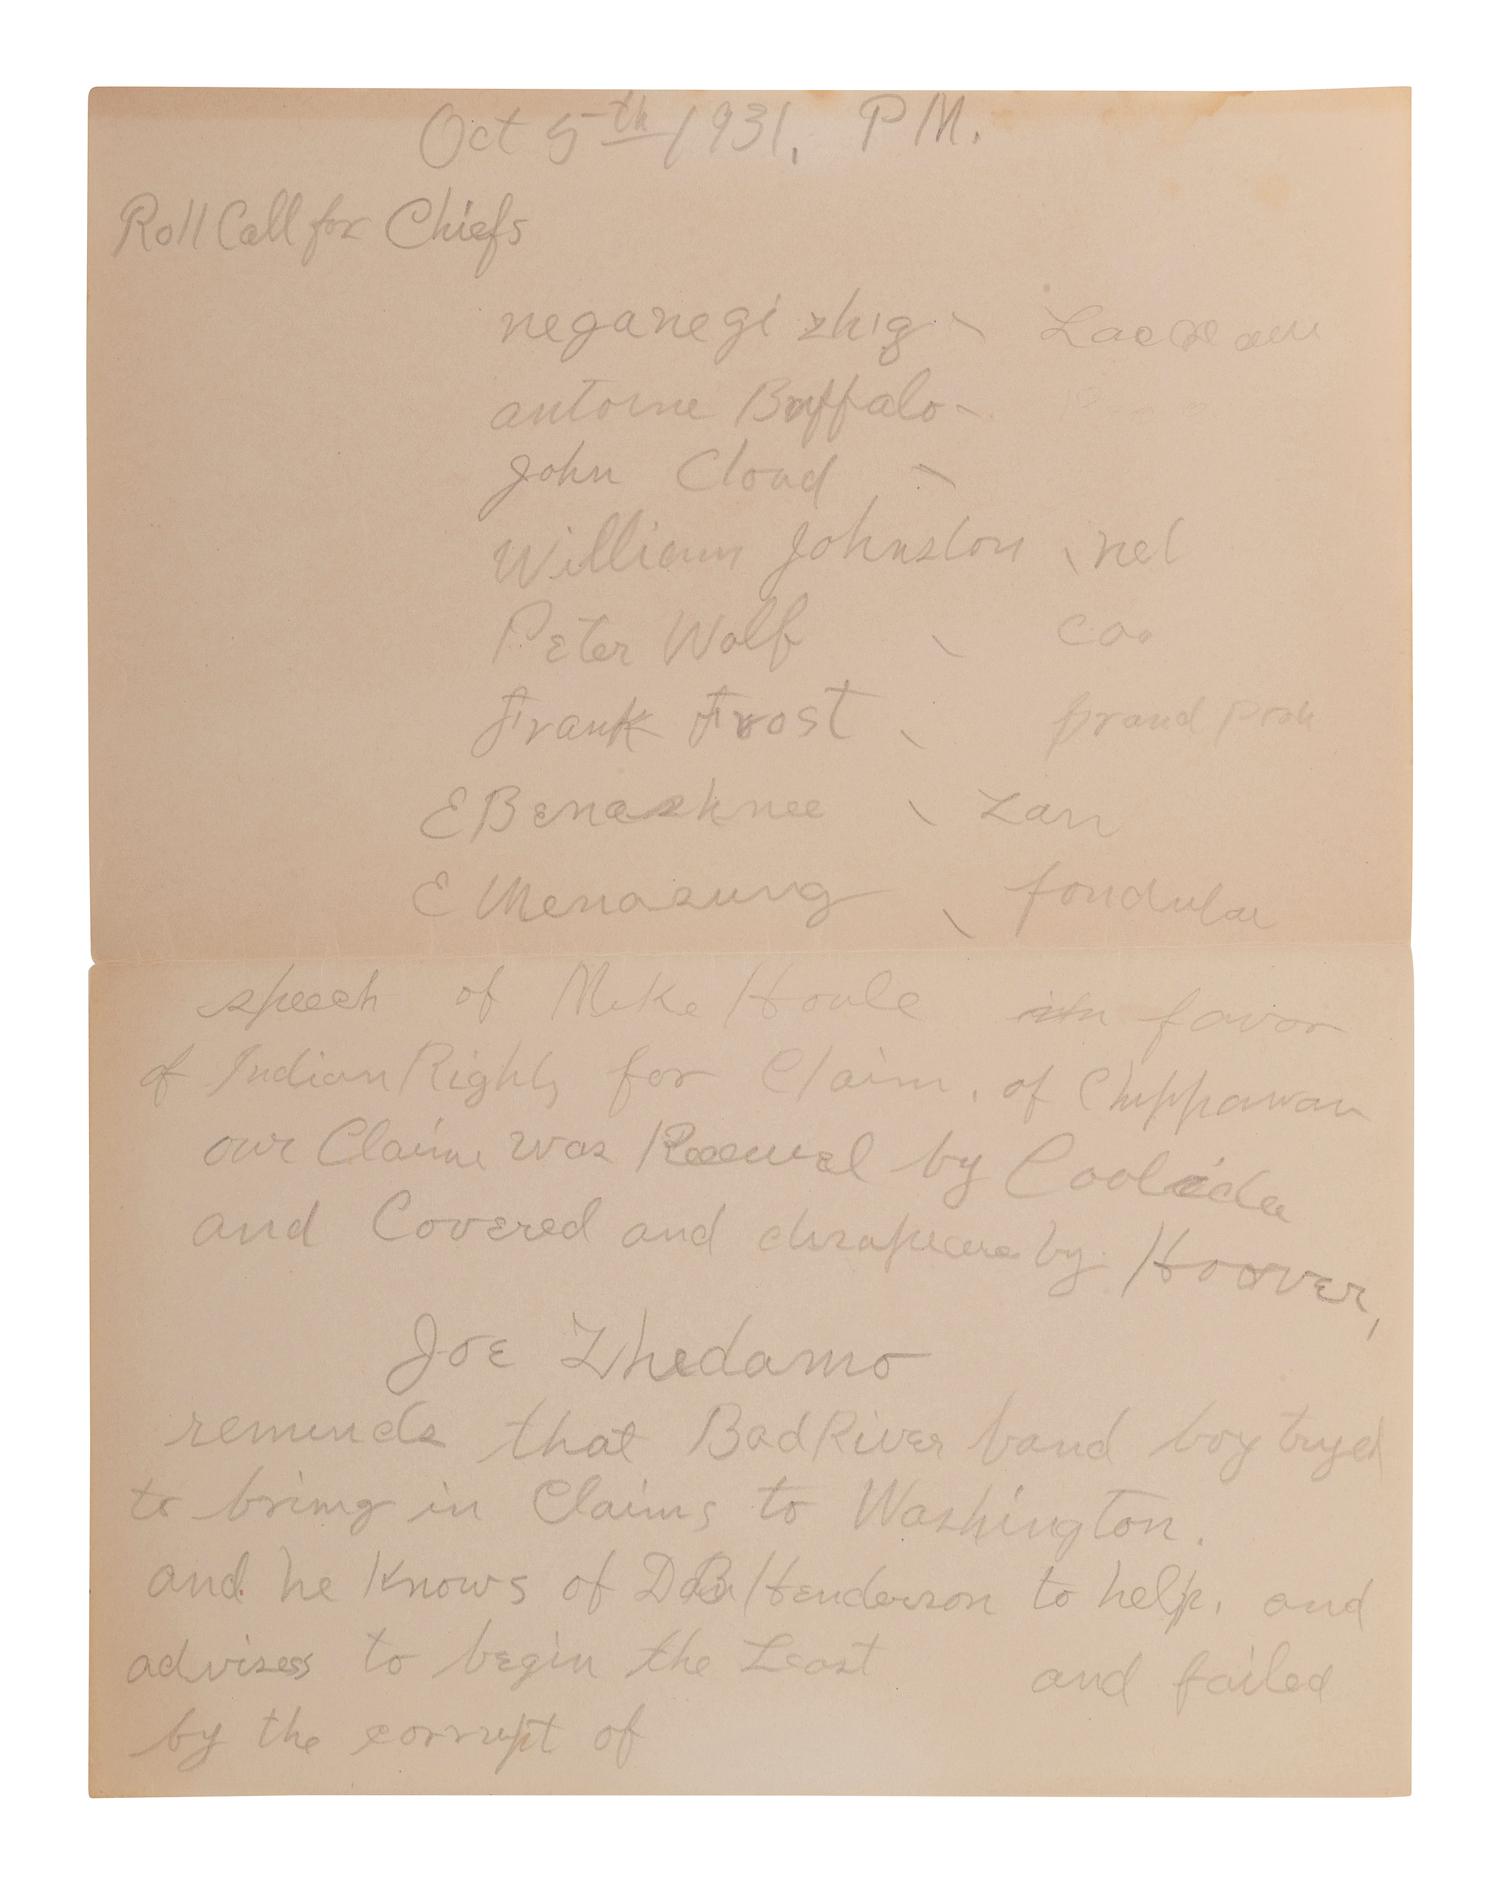 Oct 5th 1931, PM.
Roll Call for Chiefs
neganegizhig -
antoine Buffalo -
John Cloud -
William Johnston , ret
Peter Wolf - Coo
Frank Frost - Grand Port
E Benazhnee - Lan
E Menazung - fondulac
speech of Mike Houle in favor
of Indian Rights for Claim, of Chippawan
our Claim was by Coolidu
and Covered and by Hoover,
Joe Zhedamo
reminds that Bad River band boy tryed
to bring in Claims to Washington.
and he Knows of Dan Henderson to help, and
advizess to begin the Least and failed
by the corrupt of